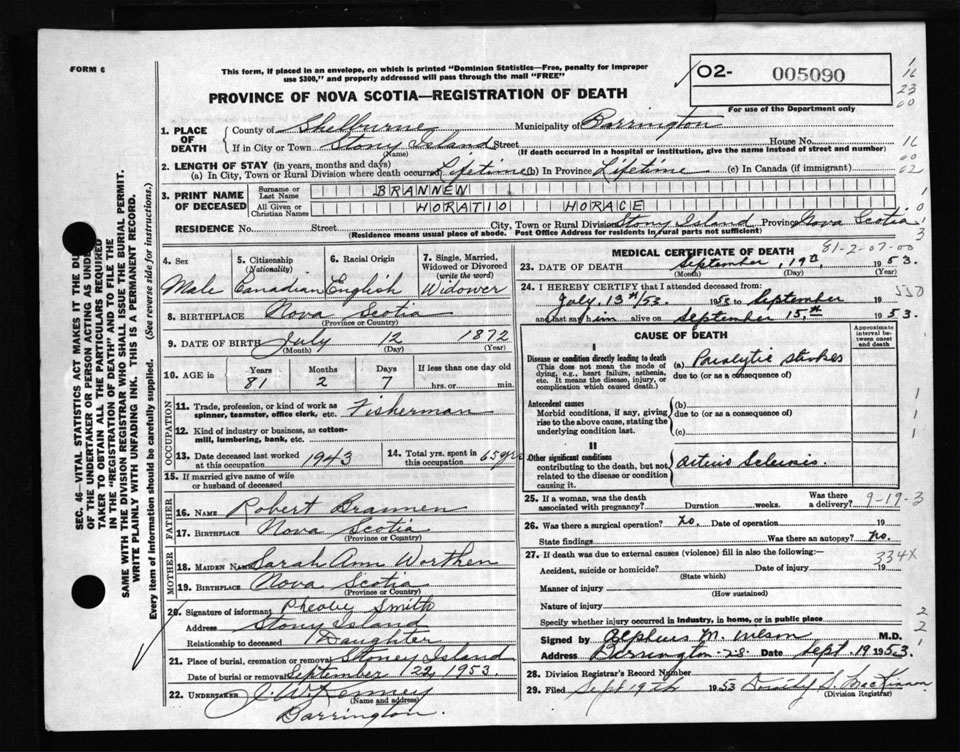 FORM 6
This form, if placed in an envelope, on which is printed "Dominion Statistics—Free, penalty for improper
use $300," and properly addressed will pass through the mail "FREE"
O2- 005090
For use of the Department only
PROVINCE OF NOVA SCOTIA—REGISTRATION OF DEATH
1. PLACE OF DEATH County of Shelburne Municipality of Barrington
If in City or Town Stony Island Street House No.
(Name) (If death occurred in a hospital or institution, give the name instead of street and number)
2. LENGTH OF STAY (in years, months and days)
(a) In City, Town or Rural Division where death occurred Lifetime (b) In Province Lifetime (c) In Canada (if immigrant)
3. PRINT NAME OF DECEASED Surname or Last Name BRANNEN
All Given or Christian Names HORATIO HORACE
RESIDENCE No. Street City, Town or Rural Division Stony Island Province Nova Scotia
(Residence means usual place of abode. Post Office Address for residents in rural parts not sufficient)
4. Sex Male
5. Citizenship (Nationality) Canadian
6. Racial Origin English
7. Single, Married, Widowed or Divorced (write the word) Widower
8. BIRTHPLACE Nova Scotia
(Province or Country)
9. DATE OF BIRTH July 12 1872
(Month) (Day) (Year)
10. AGE in Years 81 Months 2 Days 7 If less than one day old
hrs. or min.
OCCUPATION
11. Trade, profession, or kind of work as spinner, teamster, office clerk, etc. Fisherman
12. Kind of industry or business, as cotton-mill, lumbering, bank, etc.
13. Date deceased last worked at this occupation 1943
14. Total yrs. spent in this occupation 65 yrs
15. If married give name of wife or husband of deceased
FATHER
16. NAME Robert Brannen
17. BIRTHPLACE Nova Scotia
(Province or Country)
MOTHER
18. MAIDEN NAME Sarah Ann Worthen
19. BIRTHPLACE Nova Scotia
(Province or Country)
20. Signature of informant Pheobe Smith
Address Stony Island
Relationship to deceased Daughter
21. Place of burial, cremation or removal Stoney Island
Date of burial or removal September 22, 1953
22. UNDERTAKER J. W. Kenney
(Name and address)
Barrington.
MEDICAL CERTIFICATE OF DEATH 81-2-07-00
23. DATE OF DEATH September, 19th, 1953.
(Month) (Day) (Year)
24. I HEREBY CERTIFY that I attended deceased from:
July, 13th/53. 1953 to September 19
and last say him alive on September 15th 1953.
CAUSE OF DEATH
Approximate interval between onset and death
I
Disease or condition directly leading to death
(This does not mean the mode of dying, e.g., heart failure, asthenia, etc. It means the disease, injury, or complication which caused death.)
(a) Paralytic strokes
due to (or as a consequence of)
Antecedent causes
Morbid conditions, if any, giving rise to the above cause, stating the underlying condition last.
(b)
due to (or as a consequence of)
(c)
II
Other significant conditions
contributing to the death, but not related to the disease or condition causing it.
25. If a woman, was the death associated with pregnancy? Duration weeks. Was there a delivery? 9-19-3
26. Was there a surgical operation? no. Date of operation 19
State findings Was there an autopsy? no.
27. If death was due to external causes (violence) fill in also the following: 334X
Accident, suicide or homicide? Date of injury 19
(State which)
Manner of injury
(How sustained)
Nature of injury
Specify whether injury occurred in industry, in home, or in public place
Signed by Alpheus M. Wilson M.D.
Address Barrington N.S. Date Sept. 19 1953.
28. Division Registrar's Record Number
29. Filed Sept 19th 1953 Dorothy S. MacKinnon
(Division Registrar)
SEC. 46—VITAL STATISTICS ACT MAKES IT THE DU
OF THE UNDERTAKER OR PERSON ACTING AS UNDE
TAKER TO OBTAIN ALL THE PARTICULARS REQUIRED
IN THE "REGISTRATION OF DEATH" AND TO FILE THE
SAME WITH THE DIVISION REGISTRAR WHO SHALL ISSUE THE BURIAL PERMIT.
WRITE PLAINLY WITH UNFADING INK. THIS IS A PERMANENT RECORD.
Every item of information should be carefully supplied. (See reverse side for instructions.)